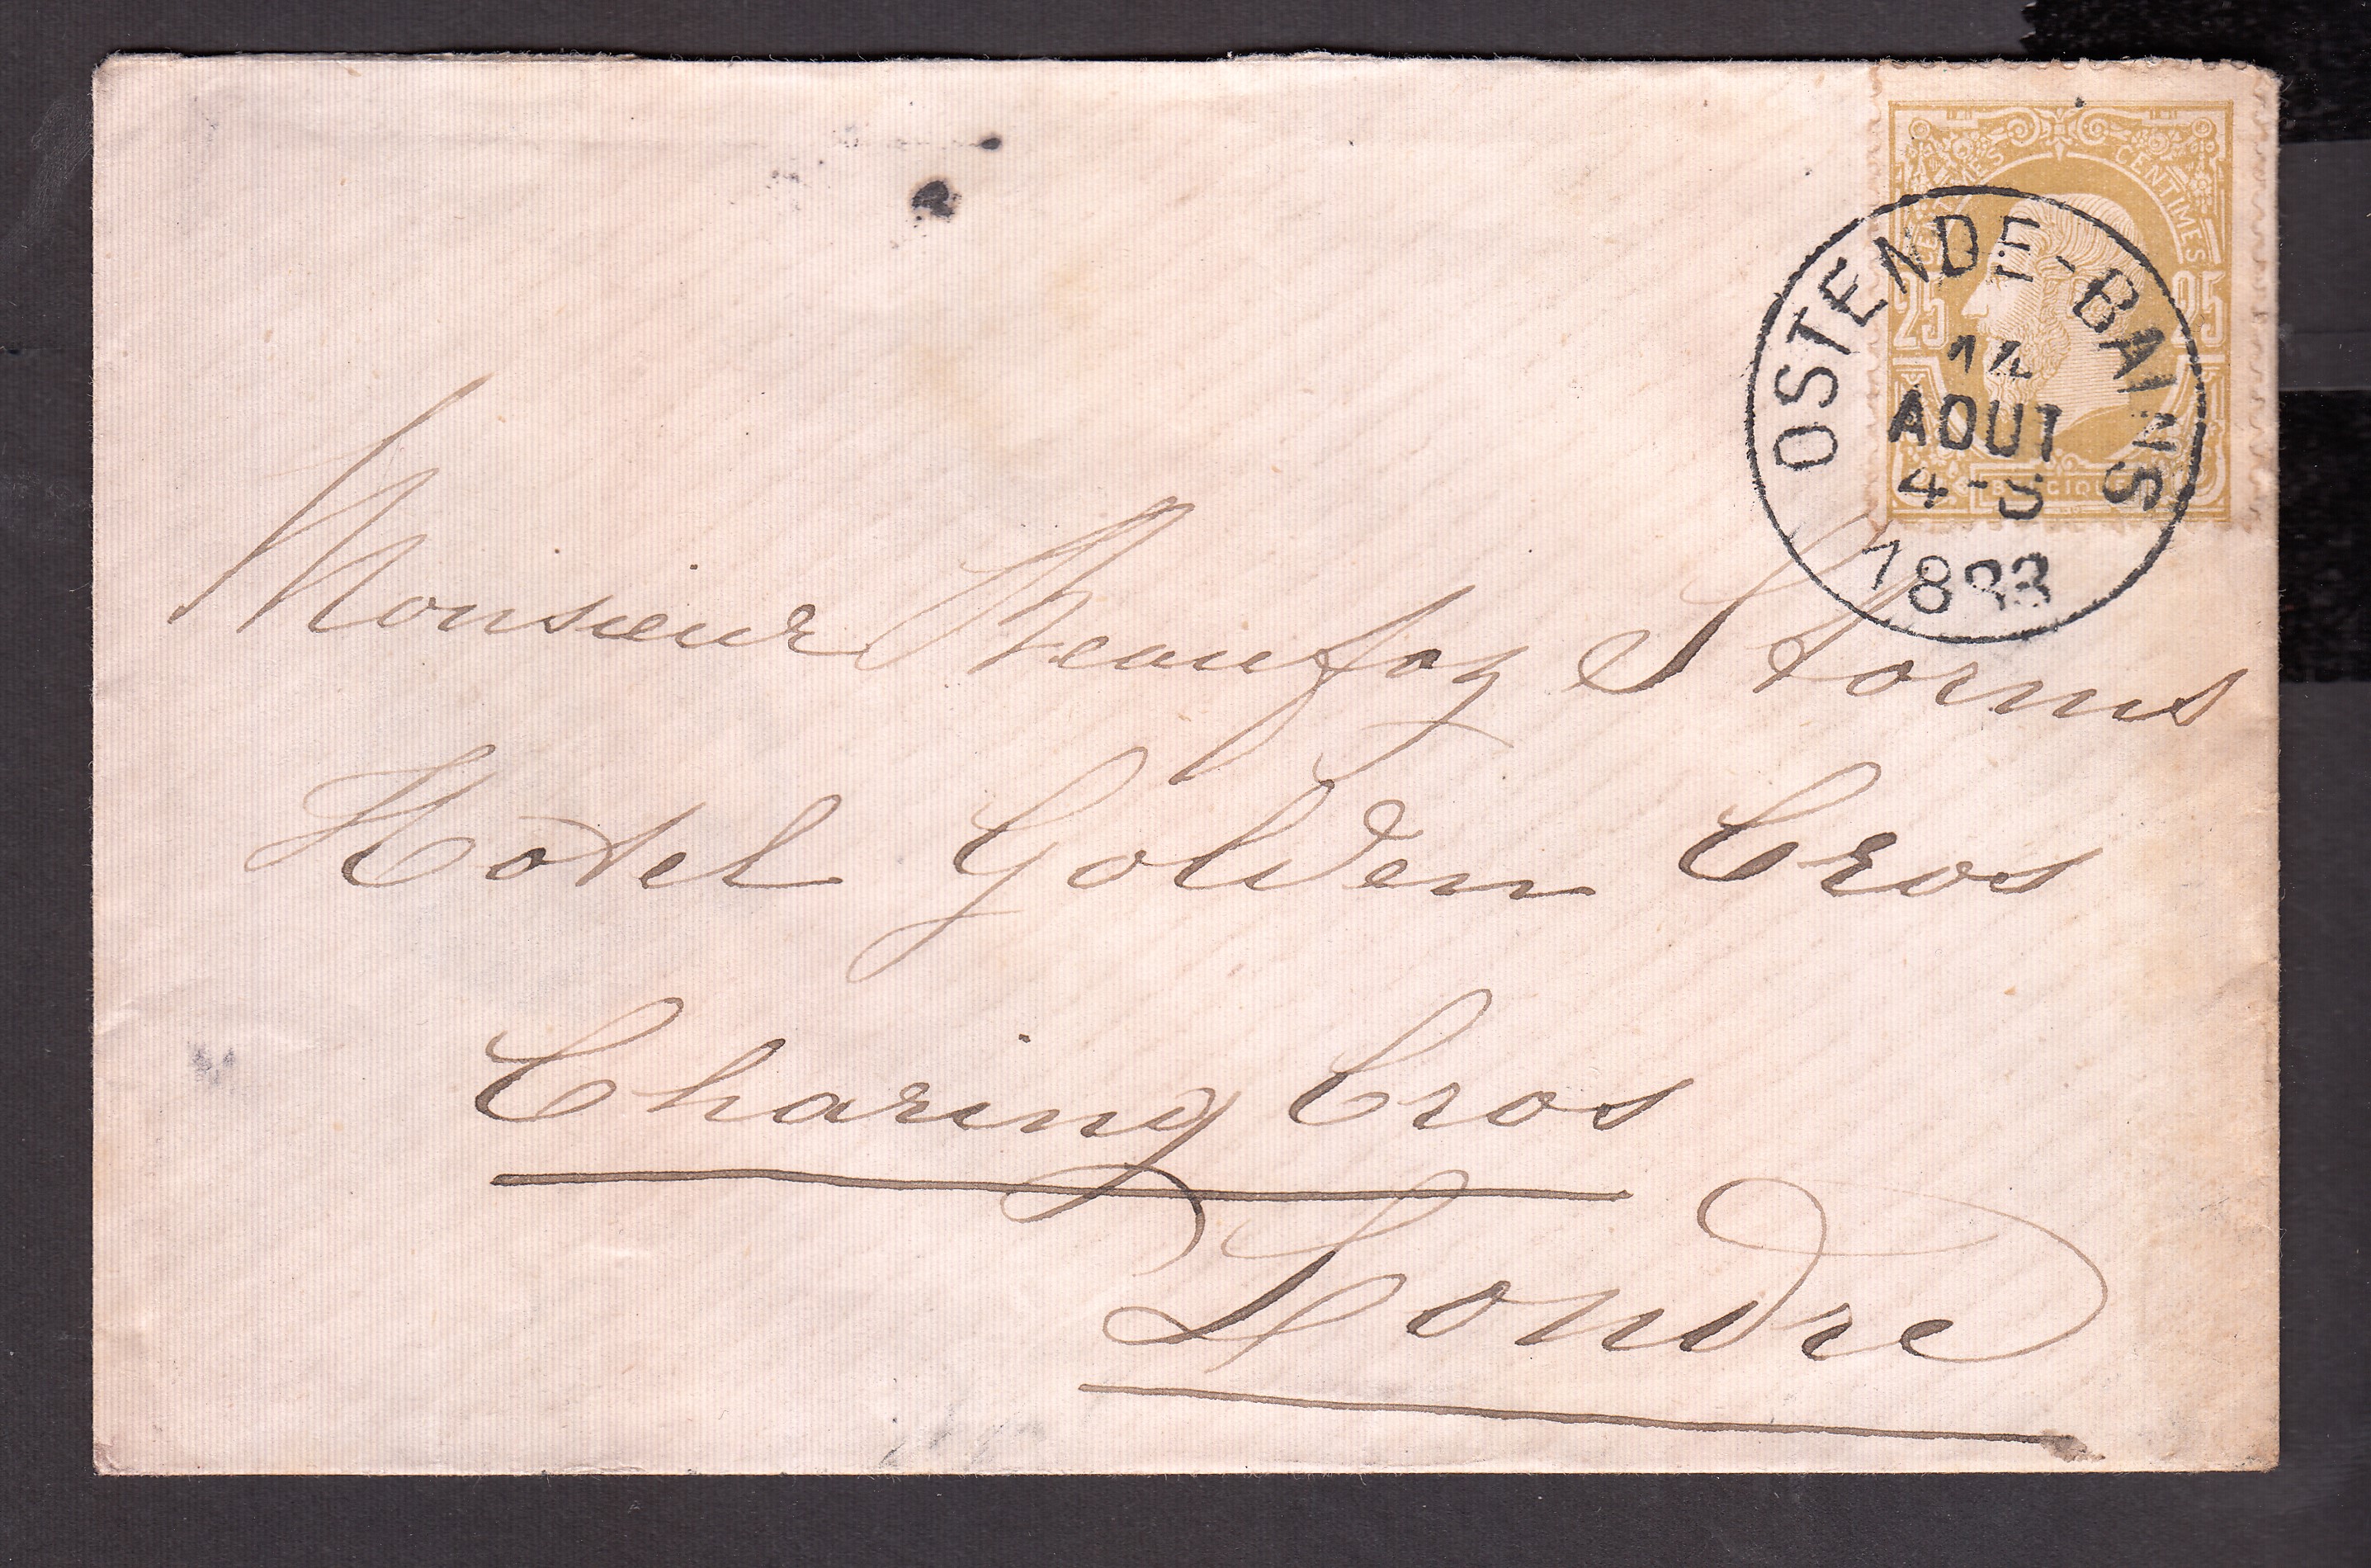 CENTIMES
25 25
OSTENDE-BAINS
14
AOUT
4-5
1883
Monsieur Beaufoy Storms
Hotel Golden Cros
Charing Cros
Londre